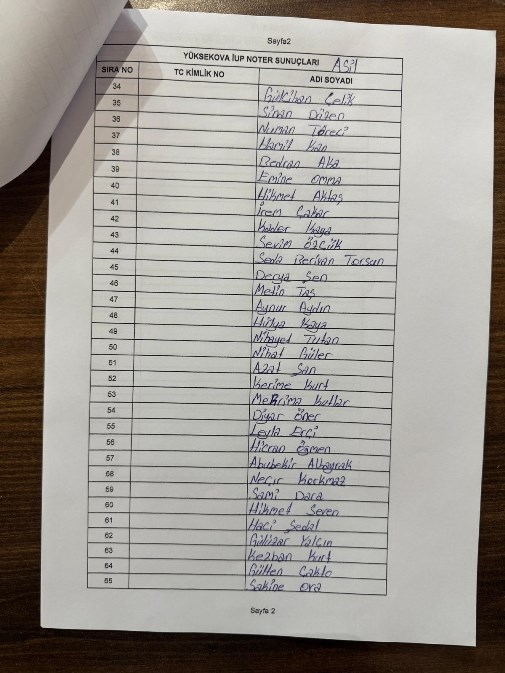 Sayfa2
YÜKSEKOVA İUP NOTER SUNUÇLARI Asil
SIRA NO TC KİMLİK NO ADI SOYADI
34 Gülcihan Çelik
35 Sinan Düzen
36 Numan Töreci
37 Hamit Kan
38 Bedran Aka
39 Emine Omma
40 Hikmet Aktaş
41 İrem Çakar
42 Kader Kaya
43 Sevim Özcük
44 Seda Berivan Torsun
45 Derya Şen
46 Metin Taş
47 Aynur Aydın
48 Hülya Kaya
49 Nihayet Turan
50 Nihat Güler
51 Azat Şan
52 Kerime Kurt
53 Mehrima Kutlar
54 Diyar Öner
55 Leyla Erçi
56 Hicran Özmen
57 Abubekir Albayrak
58 Neçir Korkmaz
59 Sami Dara
60 Hikmet Seven
61 Haci Sedat
62 Gülüzar Yalçın
63 Kezban Kurt
64 Gülten Çaklo
65 Sakine Ora
Sayfa 2